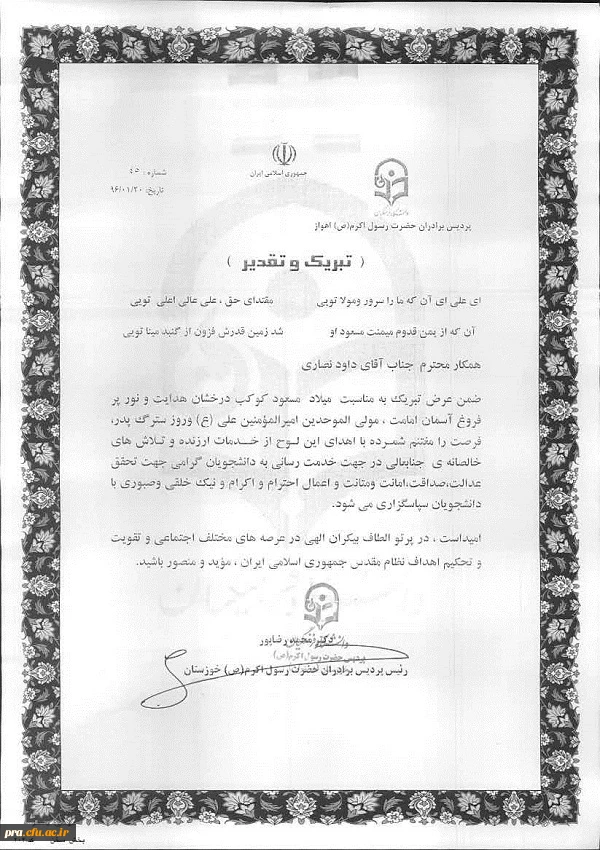 جمهوری اسلامی ایران
شماره: ٤٥
تاریخ: ۹۶/۰۱/۲۰
پردیس برادران حضرت رسول اکرم(ص) اهواز
( تبریک و تقدیر )
ای علی ای آن که ما را سرور ومولا تویی مقتدای حق ، علی عالی اعلی تویی
آن که از یمن قدوم میمنت مسعود او شد زمین قدرش فزون از گنبد مینا تویی
همکار محترم جناب آقای داود نصاری
ضمن عرض تبریک به مناسبت میلاد مسعود کوکب درخشان هدایت و نور پر
فروغ آسمان امامت ، مولی الموحدین امیرالمؤمنین علی (ع) وروز سترگ پدر،
فرصت را مغتنم شمرده با اهدای این لوح از خدمات ارزنده و تلاش های
خالصانه ی جنابعالی در جهت خدمت رسانی به دانشجویان گرامی جهت تحقق
عدالت،صداقت،امانت ومتانت و اعمال احترام و اکرام و نیک خلقی وصبوری با
دانشجویان سپاسگزاری می شود.
امیداست ، در پرتو الطاف بیکران الهی در عرصه های مختلف اجتماعی و تقویت
و تحکیم اهداف نظام مقدس جمهوری اسلامی ایران ، مؤید و منصور باشید.
دکتر مجید رضاپور
پردیس حضرت رسول اکرم(ص)
رئیس پردیس برادران حضرت رسول اکرم(ص) خوزستان
pra.cfu.ac.ir